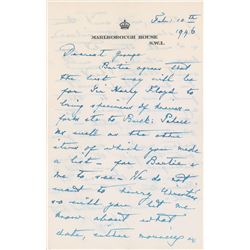 MARLBOROUGH HOUSE
S.W.1.
Feb: 10th
1946
Dearest George
Bertie agrees that
the best way will be
for Sir Harry Lloyd to
bring specimens of knives -
forks etc to Buck: Palace
as well as the other
items of which you made
a list - for Bertie &
me to see. We do not
want to hurry
so will you let me
know about what
date, either morning or